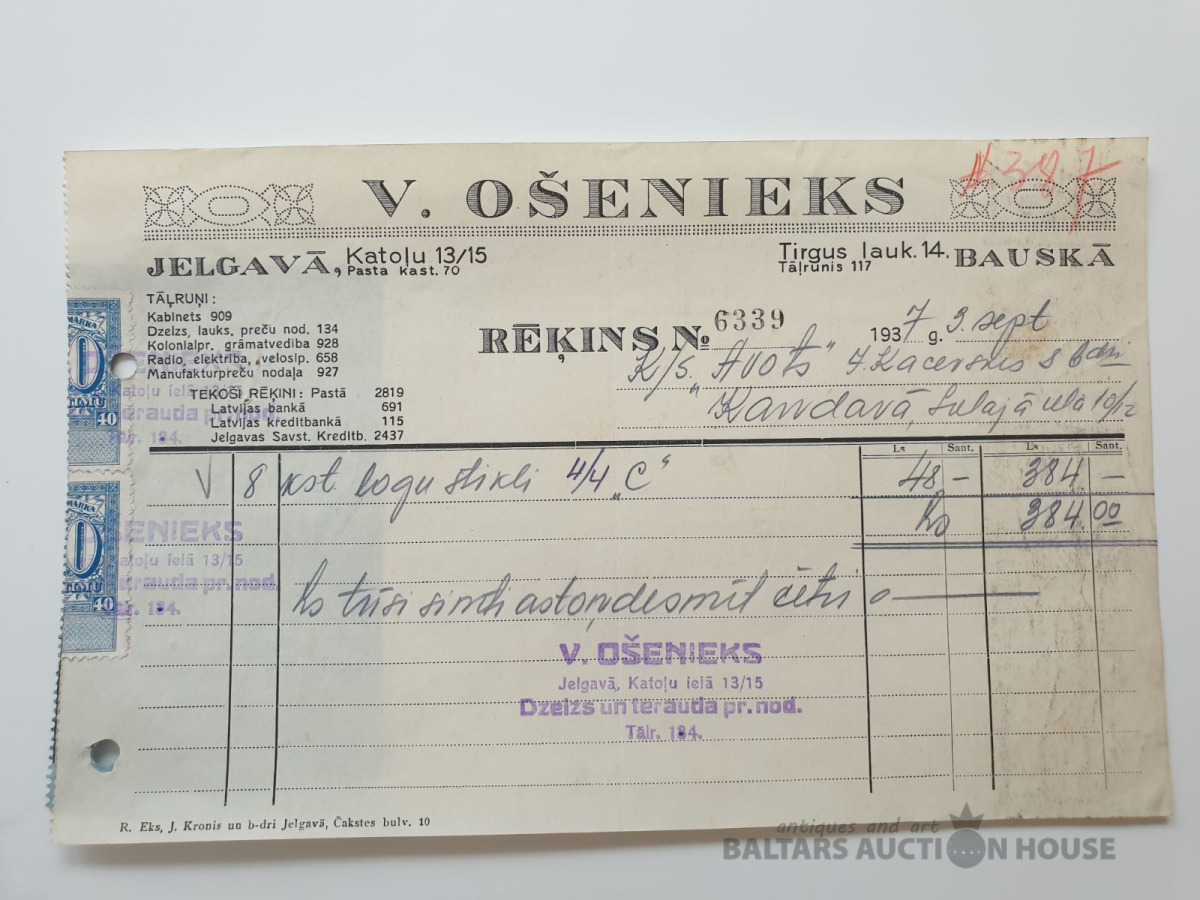 # 387
V. OŠENIEKS
JELGAVĀ, Katoļu 13/15
Pasta kast. 70
Tirgus lauk. 14. BAUSKĀ
Tāļrunis 117
TĀĻRUŅI:
Kabinets 909
Dzelzs, lauks, preču nod. 134
Kolonialpr. grāmatvedība 928
Radio, elektrība, velosip. 658
Manufakturpreču nodaļa 927
TEKOŠI RĒĶINI: Pastā 2819
Latvijas bankā 691
Latvijas kredītbankā 115
Jelgavas Savst. Kredītb. 2437
RĒĶINS № 6339
1937 g. 9. sept
K/S. „Avots" J. Kacevskis & b-dri
Kandavā, ielā 10/12
MARKA
40
MARKA
40
Ls Sant. Ls Sant.
V 8 kst. logu stikli 4/4 „C" 48 – 384 –
Ls 384.00
Ls trīsi simti astoņdesmit četri
OŠENIEKS
Katoļu ielā 13/15
tērauda pr. nod.
Tālr. 134.
V. OŠENIEKS
Jelgavā, Katoļu ielā 13/15
Dzelzs un tērauda pr. nod.
Tālr. 134.
R. Eks, J. Kronis un b-dri Jelgavā, Čakstes bulv. 10
antiques and art
BALTARS AUCTION HOUSE